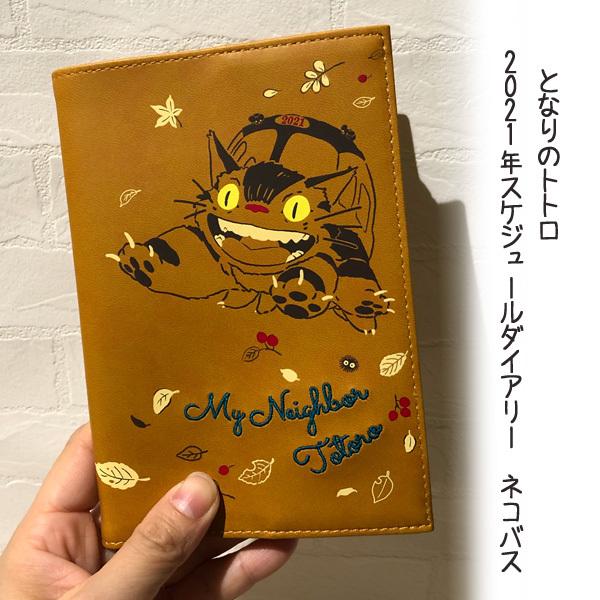 となりのトトロ
2021年スケジュールダイアリー　ネコバス
2021
My Neighbor
Totoro